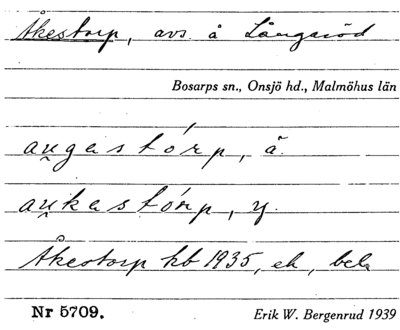 Åkestorp, avs. å Långaröd
Bosarps sn., Onsjö hd., Malmöhus län
au̯gastórp, ä.
au̯kastórp, y.
Åkestorp kb 1935, ek, bel.
Nr 5709. Erik W. Bergenrud 1939